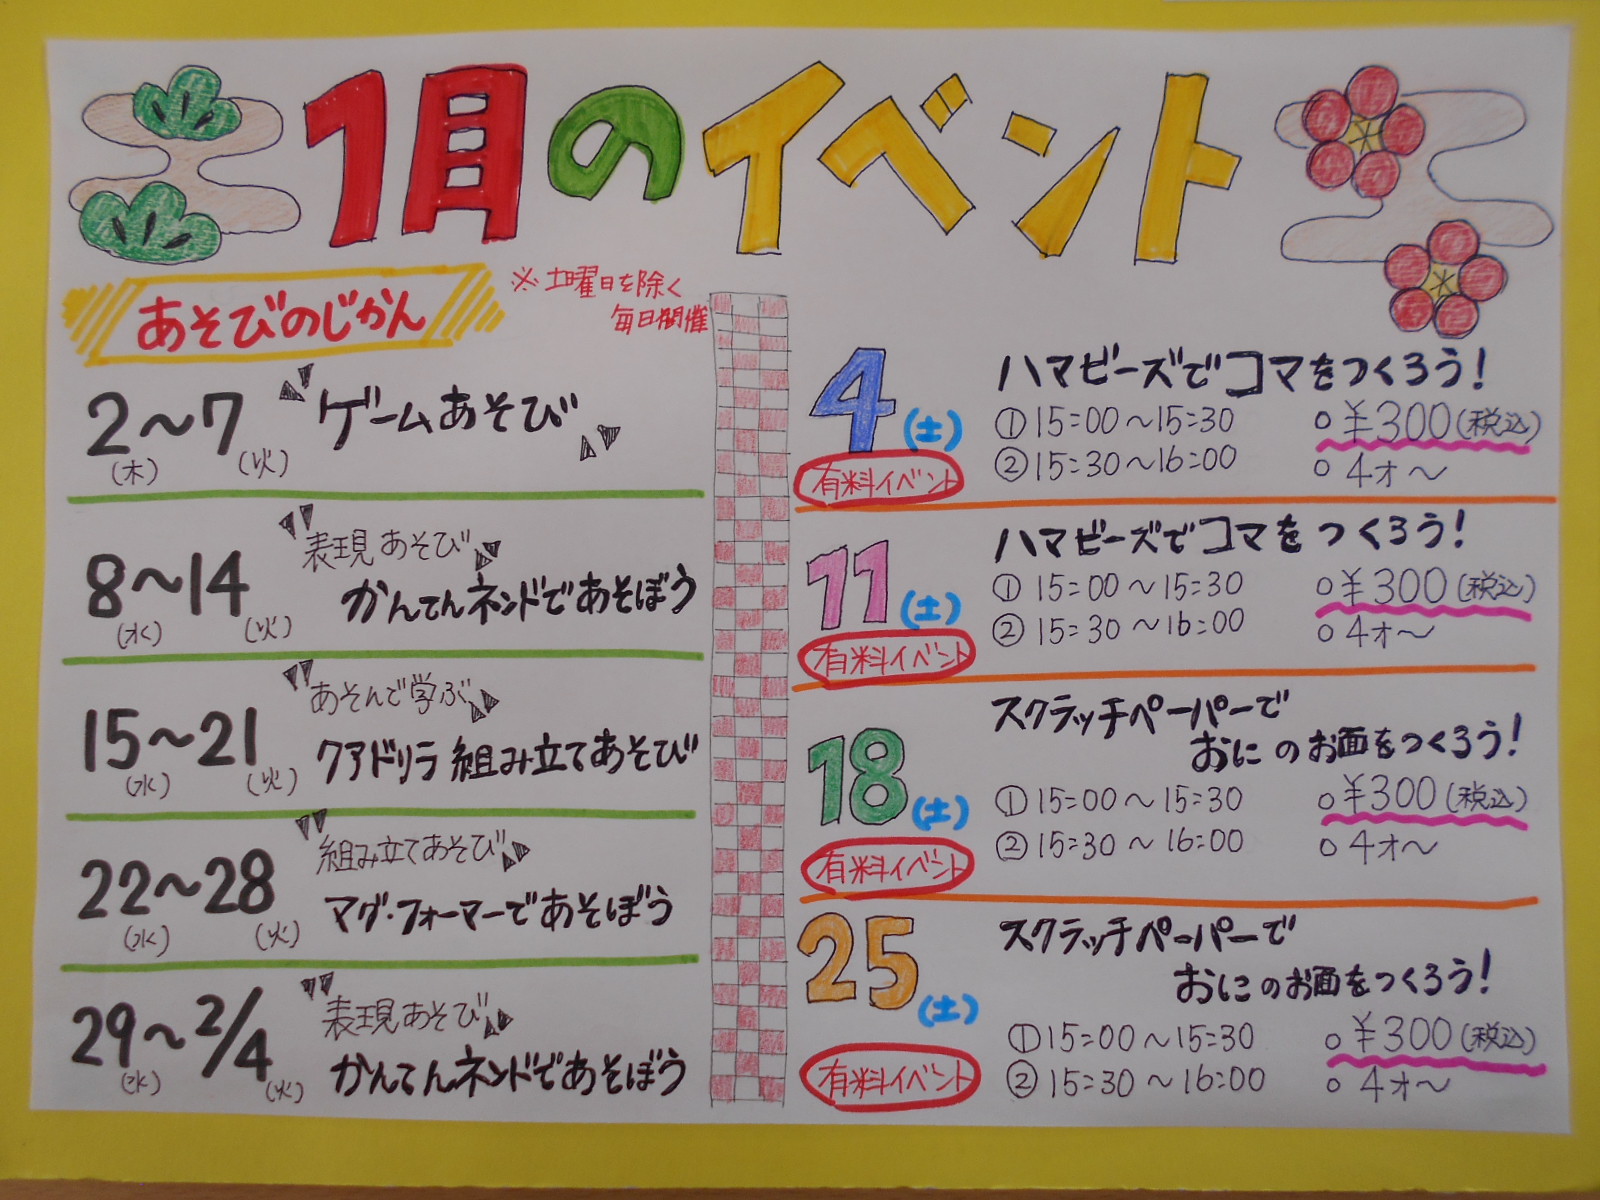 1月のイベント
あそびのじかん
※土曜日を除く
毎日開催
2～7
(木) (火)
ゲームあそび
8～14
(水) (火)
表現あそび
かんてんネンドであそぼう
15～21
(水) (火)
あそんで学ぶ
クアドリラ組み立てあそび
22～28
(水) (火)
組み立てあそび
マグ・フォーマーであそぼう
29～2/4
(水) (火)
表現あそび
かんてんネンドであそぼう
4(土)
有料イベント
ハマビーズでコマをつくろう!
①15:00～15:30 ○¥300(税込)
②15:30～16:00 ○4才～
11(土)
有料イベント
ハマビーズでコマをつくろう!
①15:00～15:30 ○¥300(税込)
②15:30～16:00 ○4才～
18(土)
有料イベント
スクラッチペーパーで
おにのお面をつくろう!
①15:00～15:30 ○¥300(税込)
②15:30～16:00 ○4才～
25(土)
有料イベント
スクラッチペーパーで
おにのお面をつくろう!
①15:00～15:30 ○¥300(税込)
②15:30～16:00 ○4才～